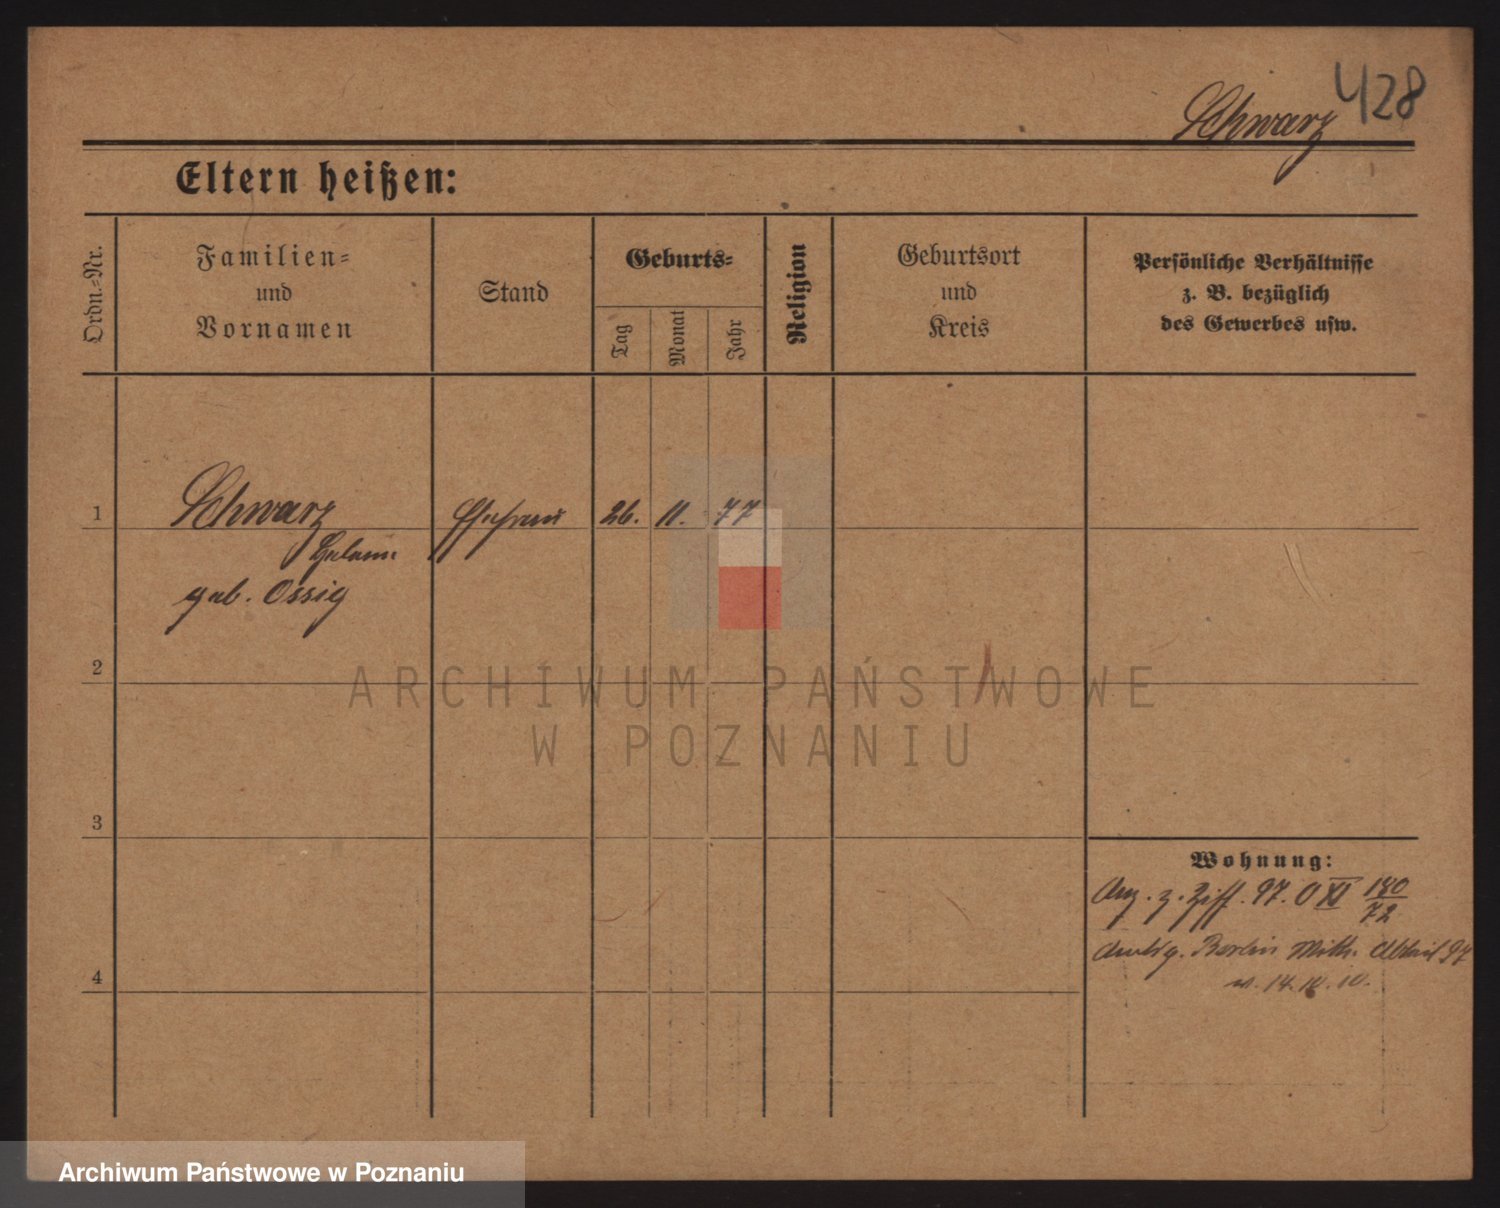 428
Schwarz
Eltern heißen:
Ordn.-Nr.
Familien-
und
Vornamen
Stand
Geburts-
Tag
Monat
Jahr
Religion
Geburtsort
und
Kreis
Persönliche Verhältnisse
z. B. bezüglich
des Gewerbes usw.
1
Schwarz
Ehefrau
26.
11.
77
geb. Ossig
2
ARCHIWUM PAŃSTWOWE
W POZNANIU
3
Wohnung:
Anz. z. Ziff. 97. O XI 180/72
Berlin Mitte 97
4
v. 14. 10. 10.
Archiwum Państwowe w Poznaniu